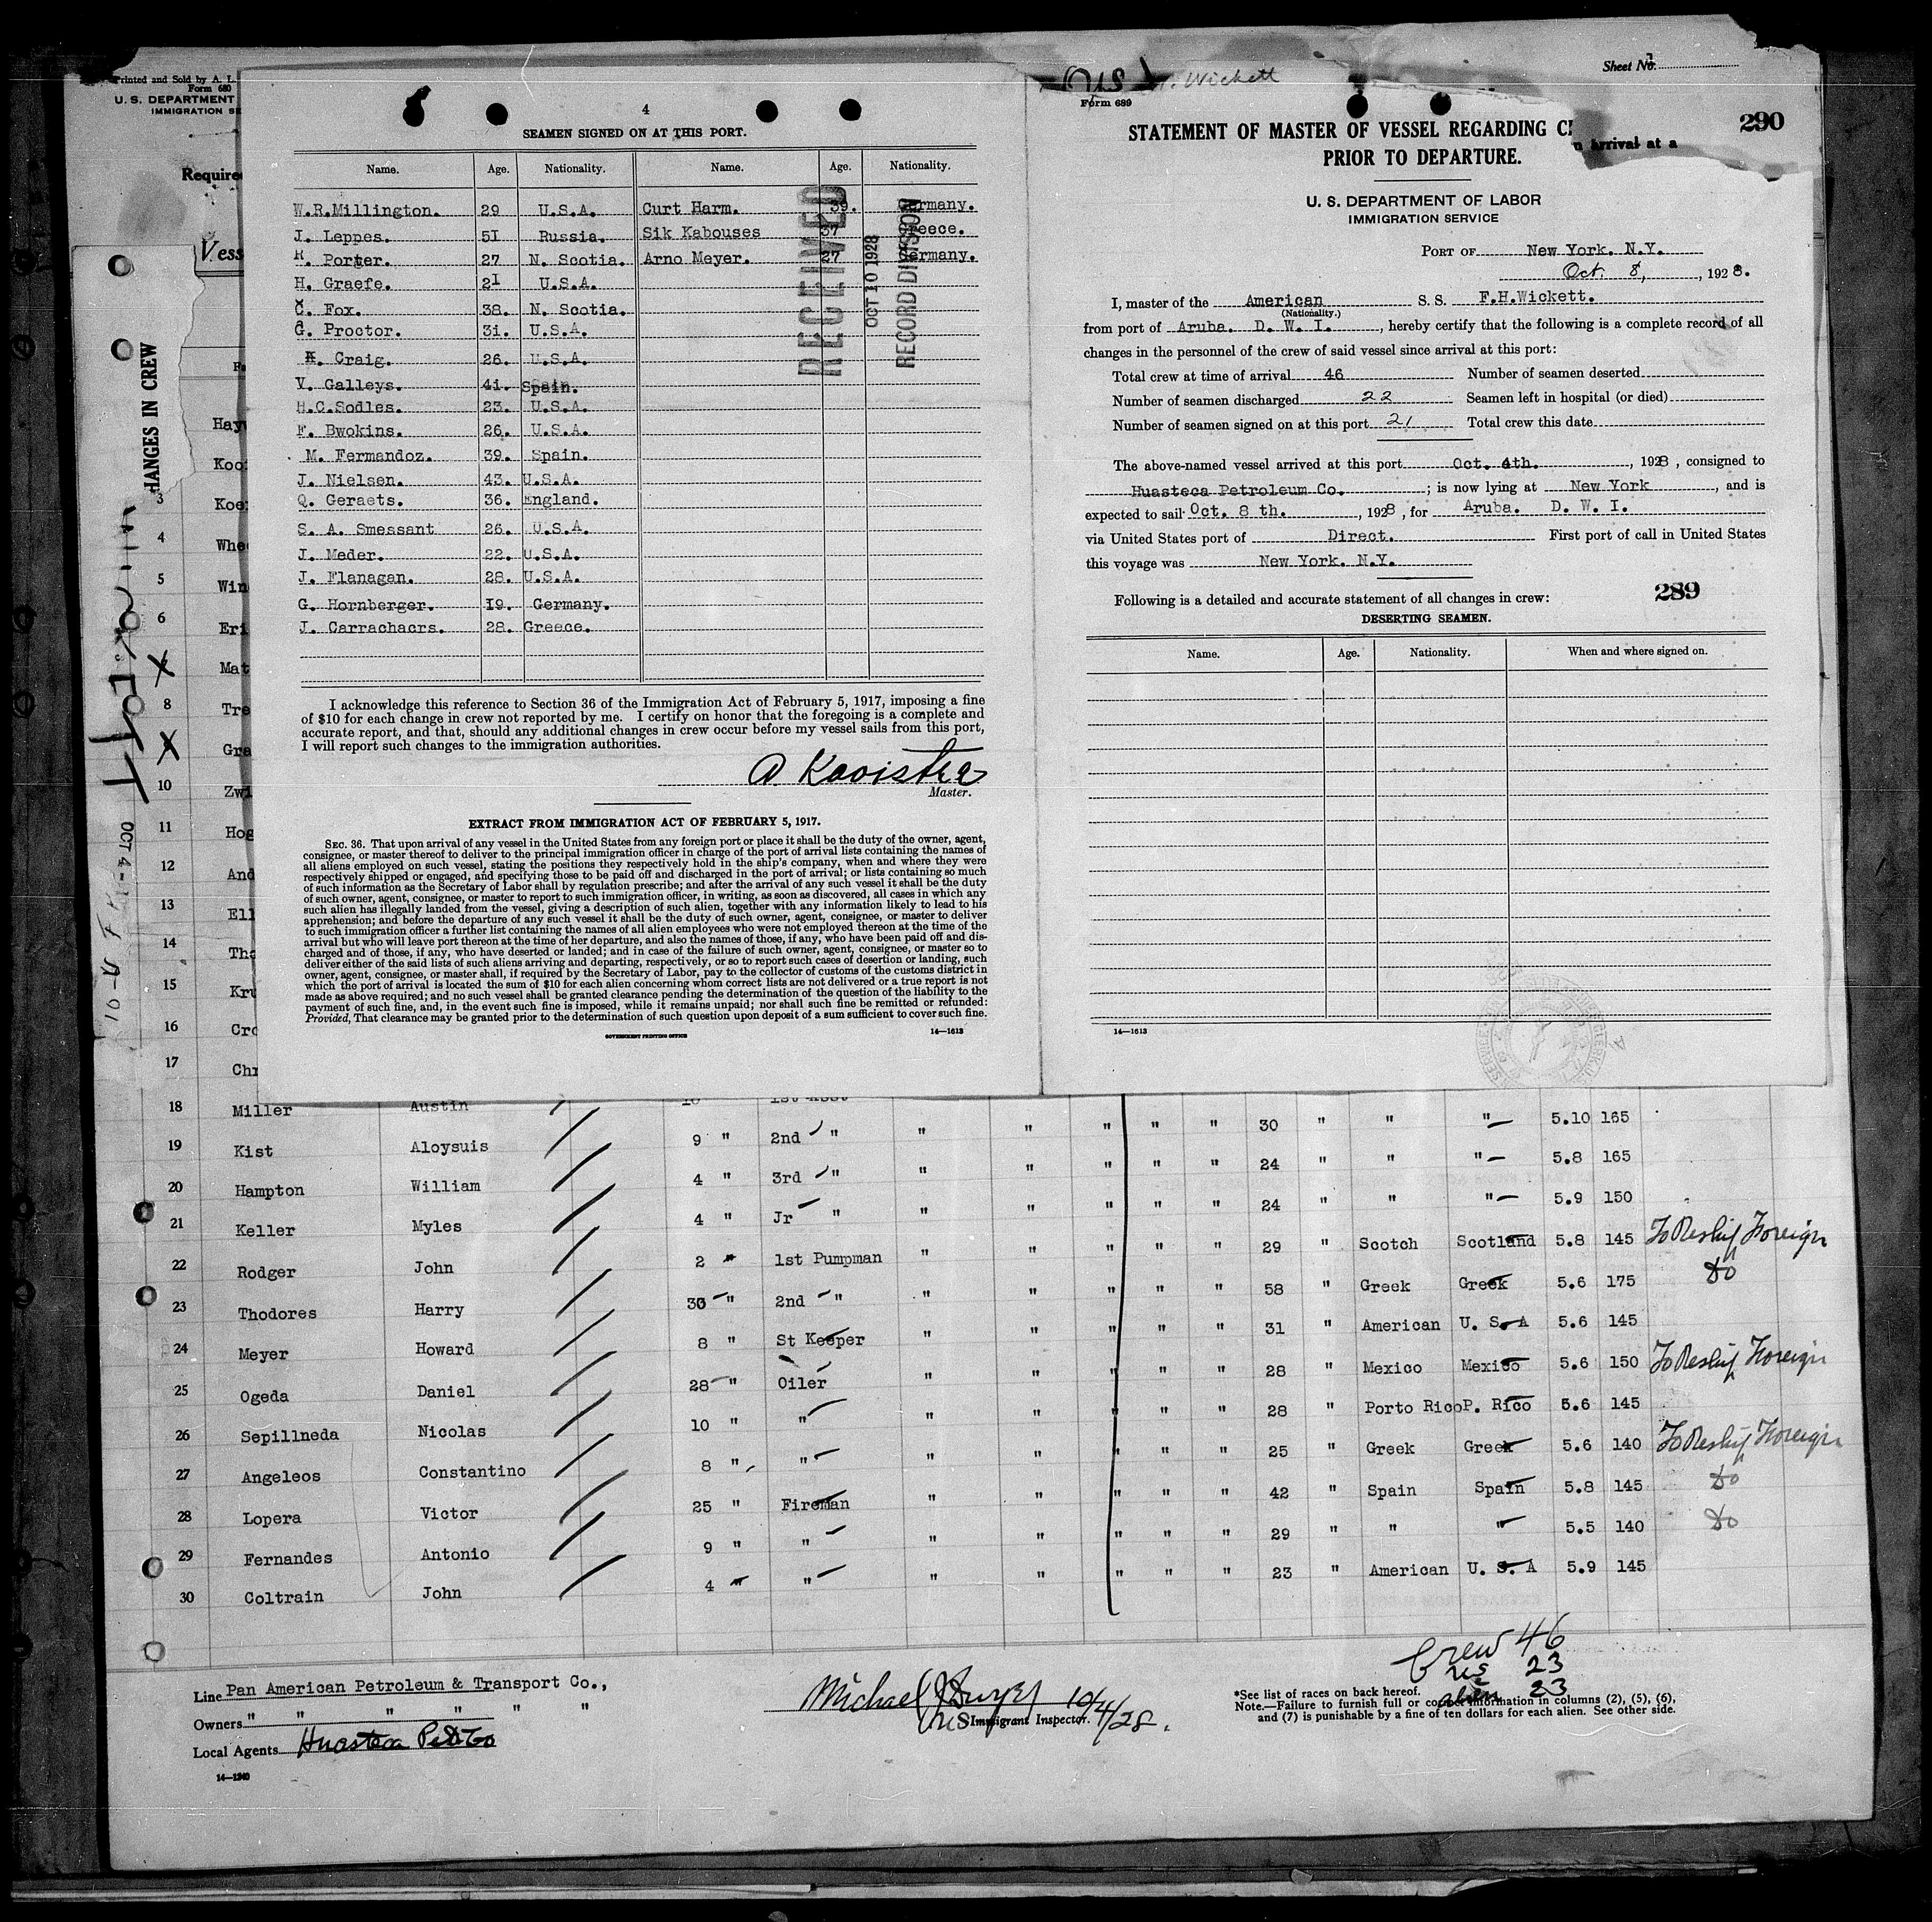 Printed and Sold by A. L.
Form 680
U. S. DEPARTMENT
IMMIGRATION SE
Required
Vess
HANGES IN CREW
4
SEAMEN SIGNED ON AT THIS PORT.
Name. Age. Nationality. Name. Age. Nationality.
W.R.Millington. 29 U.S.A. Curt Harm. 39. Germany.
J. Leppes. 51 Russia. Sik Kabouses 37 Greece.
H. Porter. 27 N. Scotia. Arno Meyer. 27 Germany.
H. Graefe. 21 U.S.A.
C. Fox. 38. N. Scotia.
G. Proctor. 31. U.S.A.
Craig. 26. U.S.A.
V. Galleys. 41. Spain.
H.C.Sodles. 23. U.S.A.
F. Bwokins. 26. U.S.A.
M. Fermandoz. 39. Spain.
J. Nielsen. 43. U.S.A.
Q. Geraets. 36. England.
S. A. Smessant 26. U.S.A.
J. Meder. 22. U.S.A.
J. Flanagan. 28. U.S.A.
G. Hornberger. 19. Germany.
J. Carrachacrs. 28. Greece.
RECEIVED
OCT 10 1928
RECORD DIVISION
I acknowledge this reference to Section 36 of the Immigration Act of February 5, 1917, imposing a fine
of $10 for each change in crew not reported by me. I certify on honor that the foregoing is a complete and
accurate report, and that, should any additional changes in crew occur before my vessel sails from this port,
I will report such changes to the immigration authorities.
A. Kooistra
Master.
EXTRACT FROM IMMIGRATION ACT OF FEBRUARY 5, 1917.
SEC. 36. That upon arrival of any vessel in the United States from any foreign port or place it shall be the duty of the owner, agent,
consignee, or master thereof to deliver to the principal immigration officer in charge of the port of arrival lists containing the names of
all aliens employed on such vessel, stating the positions they respectively hold in the ship's company, when and where they were
respectively shipped or engaged, and specifying those to be paid off and discharged in the port of arrival; or lists containing so much
of such information as the Secretary of Labor shall by regulation prescribe; and after the arrival of any such vessel it shall be the duty
of such owner, agent, consignee, or master to report to such immigration officer, in writing, as soon as discovered, all cases in which any
such alien has illegally landed from the vessel, giving a description of such alien, together with any information likely to lead to his
apprehension; and before the departure of any such vessel it shall be the duty of such owner, agent, consignee, or master to deliver
to such immigration officer a further list containing the names of all alien employees who were not employed thereon at the time of the
arrival but who will leave port thereon at the time of her departure, and also the names of those, if any, who have been paid off and dis-
charged and of those, if any, who have deserted or landed; and in case of the failure of such owner, agent, consignee, or master so to
deliver either of the said lists of such aliens arriving and departing, respectively, or so to report such cases of desertion or landing, such
owner, agent, consignee, or master shall, if required by the Secretary of Labor, pay to the collector of customs of the customs district in
which the port of arrival is located the sum of $10 for each alien concerning whom correct lists are not delivered or a true report is not
made as above required; and no such vessel shall be granted clearance pending the determination of the question of the liability to the
payment of such fine, and, in the event such fine is imposed, while it remains unpaid; nor shall such fine be remitted or refunded:
Provided, That clearance may be granted prior to the determination of such question upon deposit of a sum sufficient to cover such fine.
GOVERNMENT PRINTING OFFICE 14—1613
Wickett
Sheet No.
Form 689
290
STATEMENT OF MASTER OF VESSEL REGARDING C
arrival at a
PRIOR TO DEPARTURE.
U. S. DEPARTMENT OF LABOR
IMMIGRATION SERVICE
PORT OF New York. N.Y.
Oct. 8, , 1928.
I, master of the American S. S. F.H.Wickett.
(Nationality.)
from port of Aruba. D. W. I. , hereby certify that the following is a complete record of all
changes in the personnel of the crew of said vessel since arrival at this port:
Total crew at time of arrival 46 Number of seamen deserted
Number of seamen discharged 22 Seamen left in hospital (or died)
Number of seamen signed on at this port 21 Total crew this date
The above-named vessel arrived at this port Oct. 4th. , 1928 , consigned to
Huasteca Petroleum Co. ; is now lying at New York , and is
expected to sail Oct. 8 th. , 1928 , for Aruba. D. W. I.
via United States port of Direct. First port of call in United States
this voyage was New York. N.Y.
289
Following is a detailed and accurate statement of all changes in crew:
DESERTING SEAMEN.
Name. Age. Nationality. When and where signed on.
14—1613
Hay
Koo
3 Koe
4 Whe
5 Win
6 Eri
Mat
8 Tre
Gra
10 Zwi
11 Hog
12 And
13 Ell
14 Tha
15 Kru
16 Cro
17 Chr
18 Miller Austin 1st Asst " " " 30 " " " 5.10 165
19 Kist Aloysuis 9 " 2nd " " " " " " 24 " " " 5.8 165
20 Hampton William 4 " 3rd " " " " " " 24 " " " 5.9 150
21 Keller Myles 4 " Jr " " " " " " 29 " Scotch Scotland 5.8 145 To Reship Foreign
22 Rodger John 2 " 1st Pumpman " " " " " 58 " Greek Greek 5.6 175 do
23 Thodores Harry 30 " 2nd " " " " " " 31 " American U. S. A 5.6 145
24 Meyer Howard 8 " St Keeper " " " " " 28 " Mexico Mexico 5.6 150 To Reship Foreign
25 Ogeda Daniel 28 " Oiler " " " " " 28 " Porto Rico P. Rico 5.6 145
26 Sepillneda Nicolas 10 " " " " " " " 25 " Greek Greek 5.6 140 To Reship Foreign
27 Angeleos Constantino 8 " " " " " " " 42 " Spain Spain 5.8 145 do
28 Lopera Victor 25 " Fireman " " " " " 29 " " " 5.5 140 do
29 Fernandes Antonio 9 " " " " " " " 23 " American U. S. A 5.9 145
30 Coltrain John 4 " "
Crew 46
US 23
alien 23
Line Pan American Petroleum & Transport Co.,
Owners " " " " " "
Local Agents Huasteca Pet Co
14—1240
Michael J Dwyer 10/4/28.
US Immigrant Inspector.
*See list of races on back hereof.
Note.—Failure to furnish full or correct information in columns (2), (5), (6),
and (7) is punishable by a fine of ten dollars for each alien. See other side.